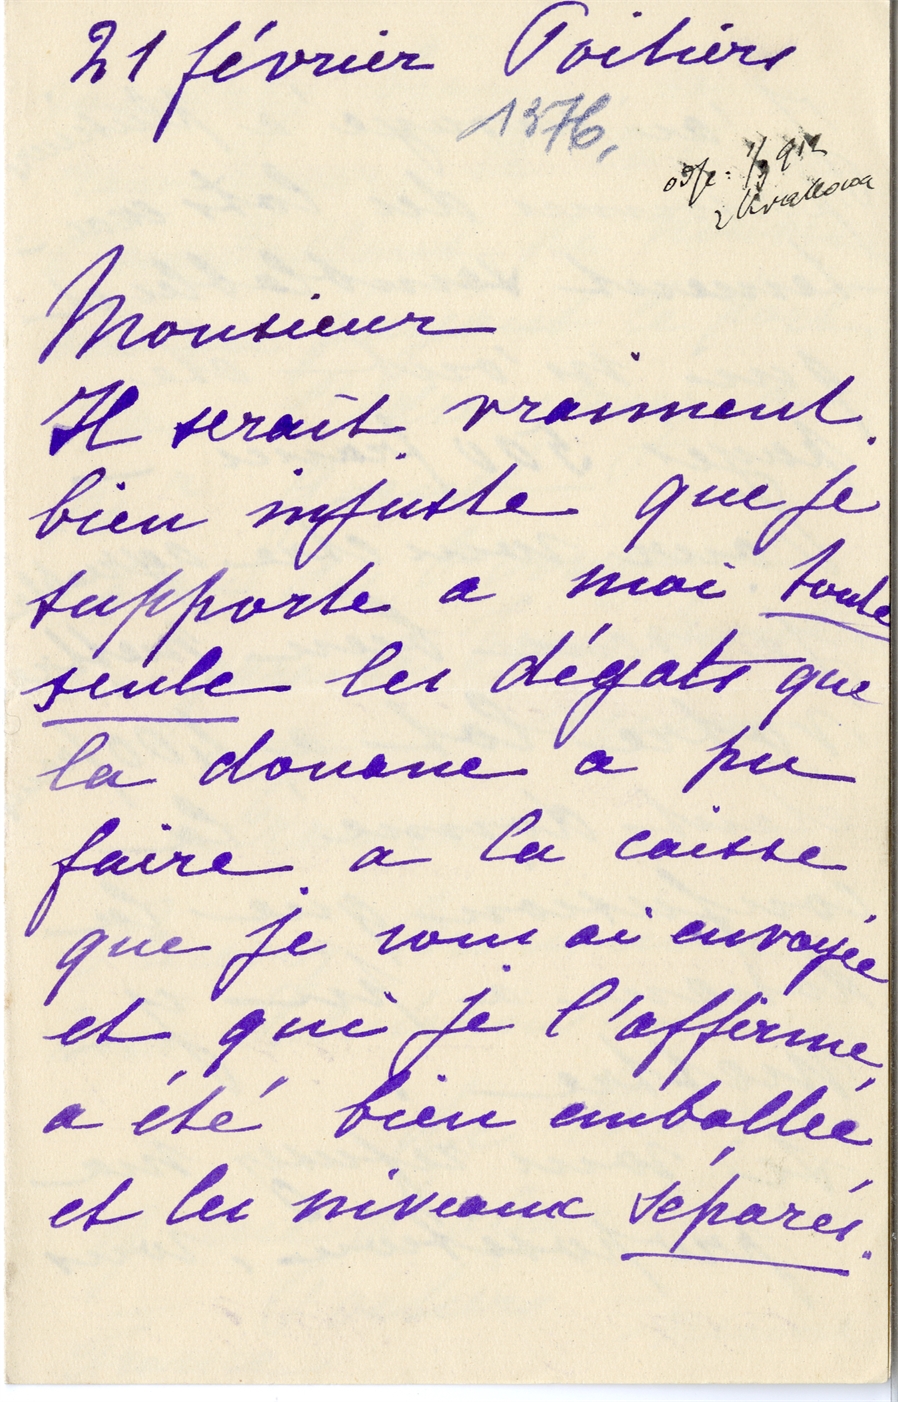 21 février Poitiers
1376.
odp. 1/3 912
z Krakowa
Monsieur
Il serait vraiment
bien injuste que je
supporte a moi toute
seule les dégats que
la douane a pu
faire a la caisse
que je vous ai envoyée
et qui je l'affirme,
a été bien emballée
et les niveaux séparés.